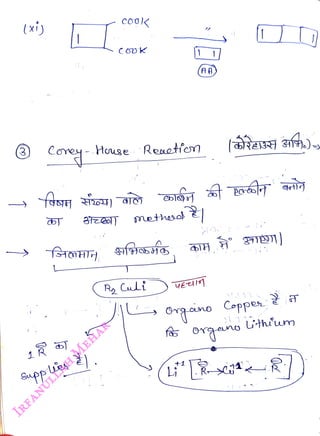 (xi)
COOK
COOK
"
1
1 1
(AA)
1
③ Corey-House Reaction (कोरेहाउस अभि॰)→
→ विषम संख्या वाले कार्बन की एल्केन बनाने
का अच्छा method है।
→ जिलमान अभिकर्मक काम में आएगा।
R₂CuLi पहचान
→ organo Copper है न
कि organo Lithium
1 R̄ का
supplier है।
Li⁺¹ [R̄→Cu⁺¹← R̄]
IRFANULLAH MEHAR